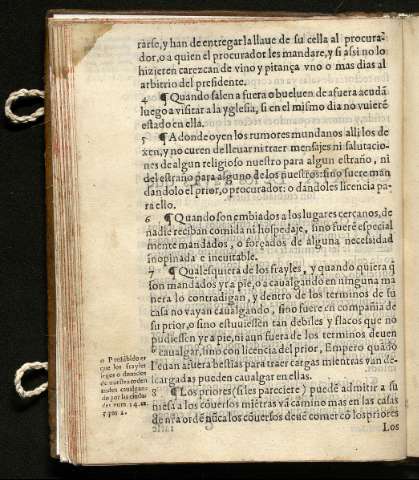 rarse, y han de entregar la llaue de su cella al procura-
dor, o a quien el procurador les mandare, y si assi no lo
hizieren carezcan de vino y pitança vno o mas dias al
arbitrio del presidente.
4 ¶ Quando salen a fuera o bueluen de afuera acudã
luego a visitar la yglesia, si en el mismo dia no vuierẽ
estado en ella.
5 ¶ Adonde oyen los rumores mundanos alli los de
xen, y no curen de lleuar ni traer mensajes ni salutacio-
nes de algun religioso nuestro para algun estraño, ni
del estraño para alguno de los nuestros: sino fuere man
dandolo el prior, o procurador: o dandoles licencia pa-
ra ello.
6 ¶ Quando son embiados a los lugares cercanos, de
nadie reciban comida ni hospedaje, sino fuerẽ especial
mente mandados, o forçados de alguna necessidad
inopinada e ineuitable.
7 ¶ Qualesquiera de los frayles, y quando quiera q̃
son mandados yr a pie, o a caualgando en ninguna ma
nera lo contradigan, y dentro de los terminos de su
casa no vayan caualgando, sino fuere en compañia de
su prior, o sino estuuiessen tan debiles y flacos que no
pudiessen yr a pie, ni aun fuera de los terminos deuen
a caualgar, sino con licencia del prior, Empero quãdo
lleuan afuera bestias para traer cargas mientras van de-
scargadas pueden caualgar en ellas.
8 ¶ Los priores (si les pareciere) puedẽ admitir a su
mesa a los cõuersos miẽtras vã camino mas en las casas
de nr̃a ordẽ nũca los cõuersos deuẽ comer cõ los priores
Los
a Prohibido es
que los frayles
legos o donados
de nuestra orden
anden caualgan-
do por las ciuda
des